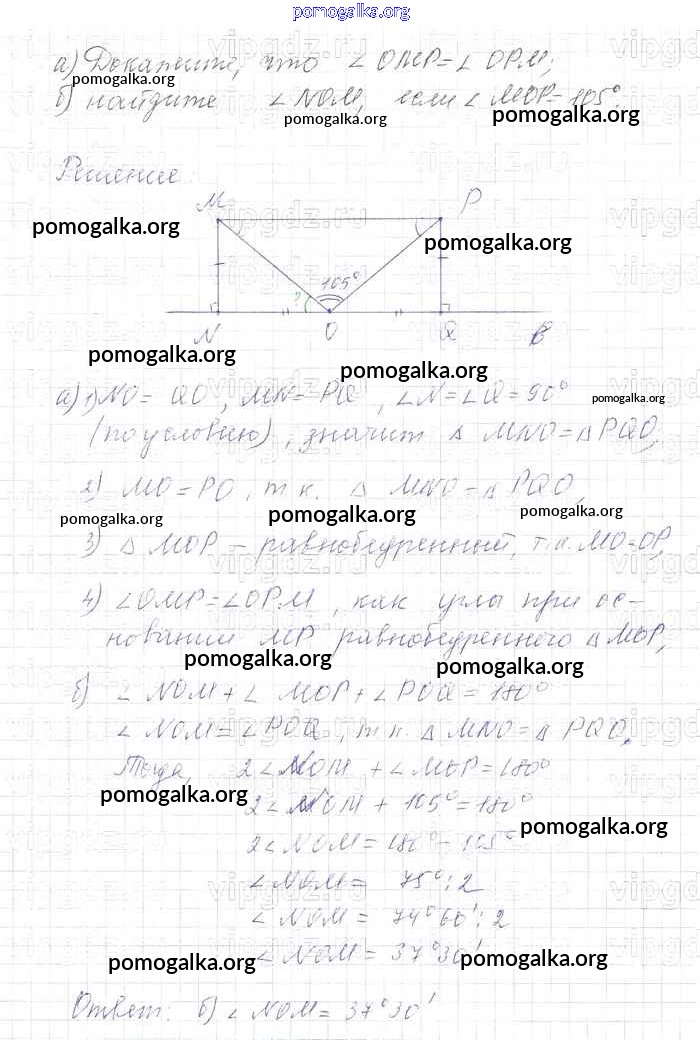 pomogalka.org
а) Докажите, что ∠ OMP = ∠ OPM;
pomogalka.org
б) найдите ∠ NOM, если ∠ MOP = 105°.
pomogalka.org pomogalka.org
Решение:
M P
pomogalka.org
pomogalka.org
105°
?
N O Q b
pomogalka.org
pomogalka.org
а) 1) NO = QO, MN = PQ, ∠N = ∠Q = 90°
pomogalka.org
(по условию), значит △ MNO = △ PQO;
2) MO = PO, т.к. △ MNO = △ PQO,
pomogalka.org pomogalka.org pomogalka.org
3) △ MOP – равнобедренный, т.к. MO = OP,
4) ∠OMP = ∠OPM, как углы при ос-
новании MP равнобедренного △ MOP,
pomogalka.org pomogalka.org
б) ∠ NOM + ∠ MOP + ∠ POQ = 180°
∠ NOM = ∠ POQ, т.к. △ MNO = △ PQO.
Тогда, 2∠ NOM + ∠ MOP = 180°
pomogalka.org
2∠ NOM + 105° = 180°
pomogalka.org
2∠ NOM = 180° – 105°
∠ NOM = 75° : 2
∠ NOM = 74°60' : 2
∠ NOM = 37°30'
pomogalka.org pomogalka.org
Ответ: б) ∠ NOM = 37°30'